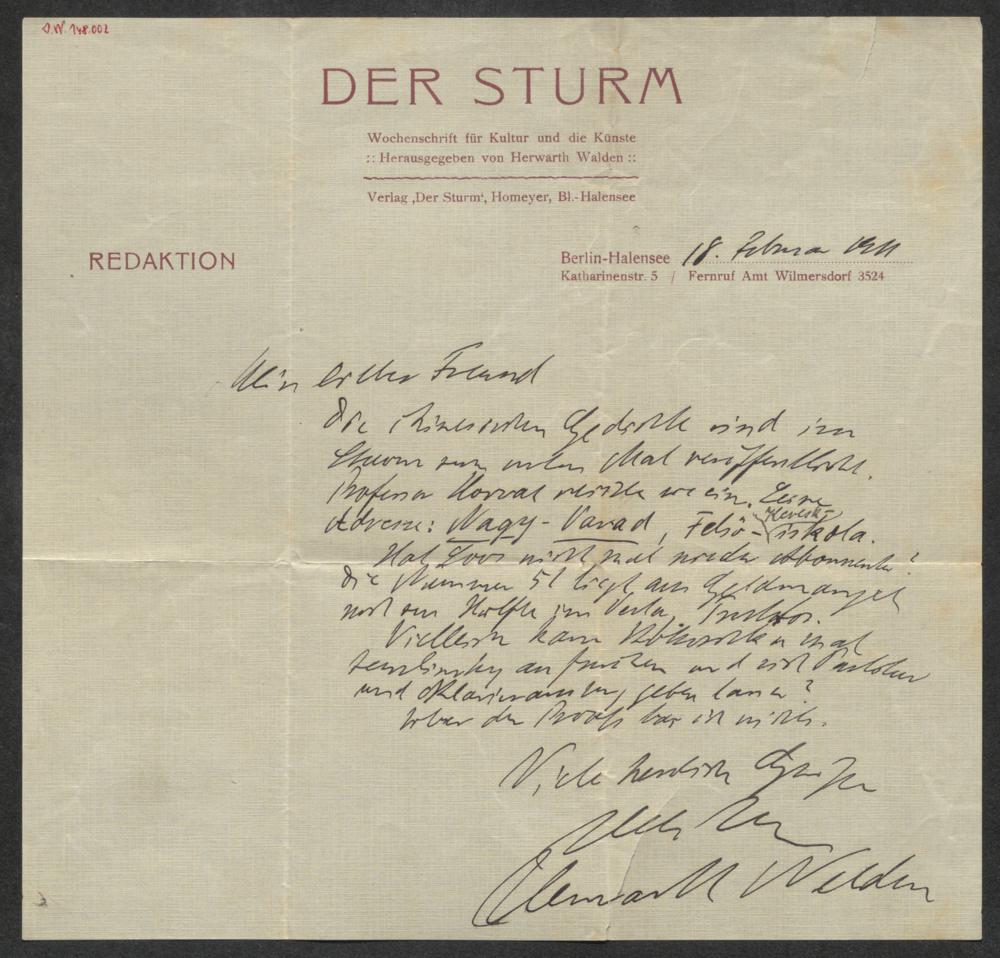 D.W. 148.002
DER STURM
Wochenschrift für Kultur und die Künste
:: Herausgegeben von Herwarth Walden ::
Verlag ‚Der Sturm‘, Homeyer, Bl.-Halensee
REDAKTION
Berlin-Halensee 18. Februar 1911
Katharinenstr. 5 / Fernruf Amt Wilmersdorf 3524
Mein lieber Freund
Die chinesischen Gedichte sind im
Sturm zum ersten Mal veröffentlicht.
Professor Horvat reichte sie ein. Seine
Kereszt-
Adresse: Nagy-Varad, Felsö- iskola.
Hat Loos nicht mal wieder Abonnenten?
Die Nummer 51 liegt aus Geldmangel
noch zur Hälfte im Verlag
Vielleicht kann Kokoschka mal
Zemlinsky anfragen und sich Partitur
und Klavierauszug geben lassen?
Ueber den Prozess hör ich nichts.
Viele herzliche Grüsse
Ihr
Herwarth Walden